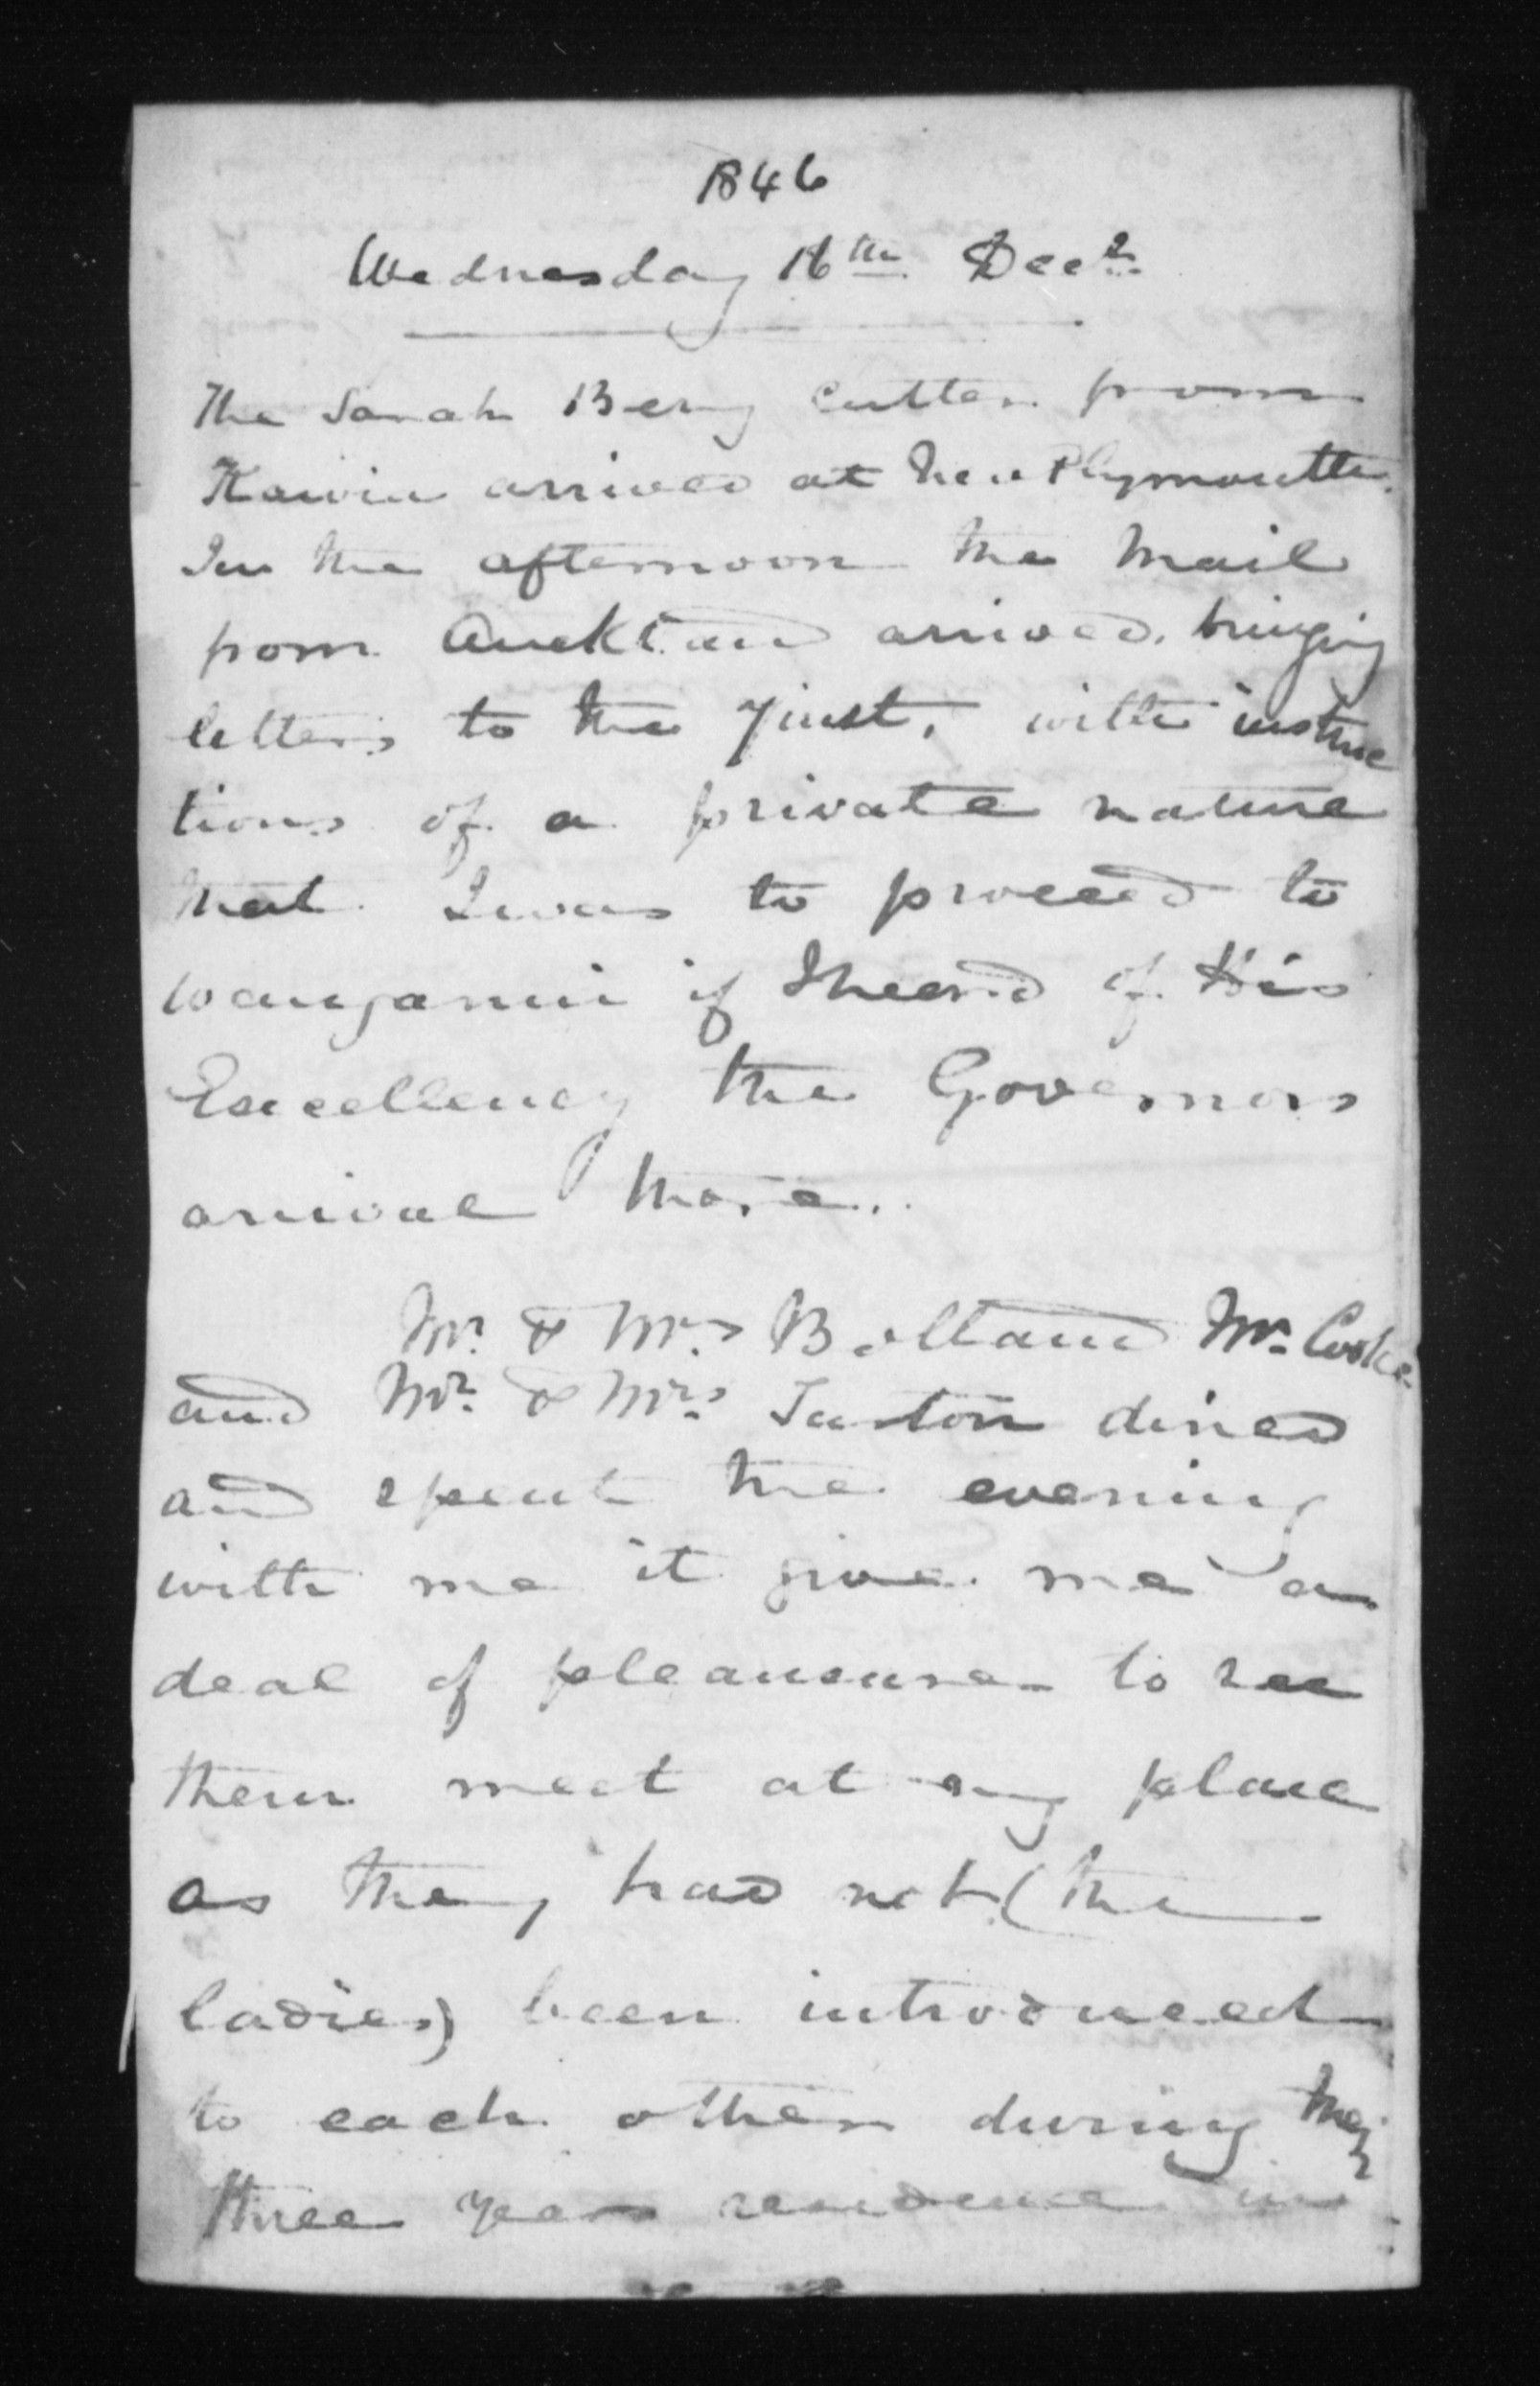 1846
Wednesday 16th Decr
The Sarah Berry Cutter from
Kawia arrived at New Plymouth.
In the afternoon the Mail
from Auckland arrived, bringing
letters to the 7 inst, with instruc
tions of a private nature
that I was to proceed to
Wanganui if I heard of His
Excellency the Governors
arrival there.
Mr. & Mrs Bolland Mr. Cooke
and Mr. & Mrs Turton dined
and spent the evening
with me it give me a
deal of pleasure to see
them meet at my place
as they had not (the
ladies) been introduced
to each other during their
three years residence in